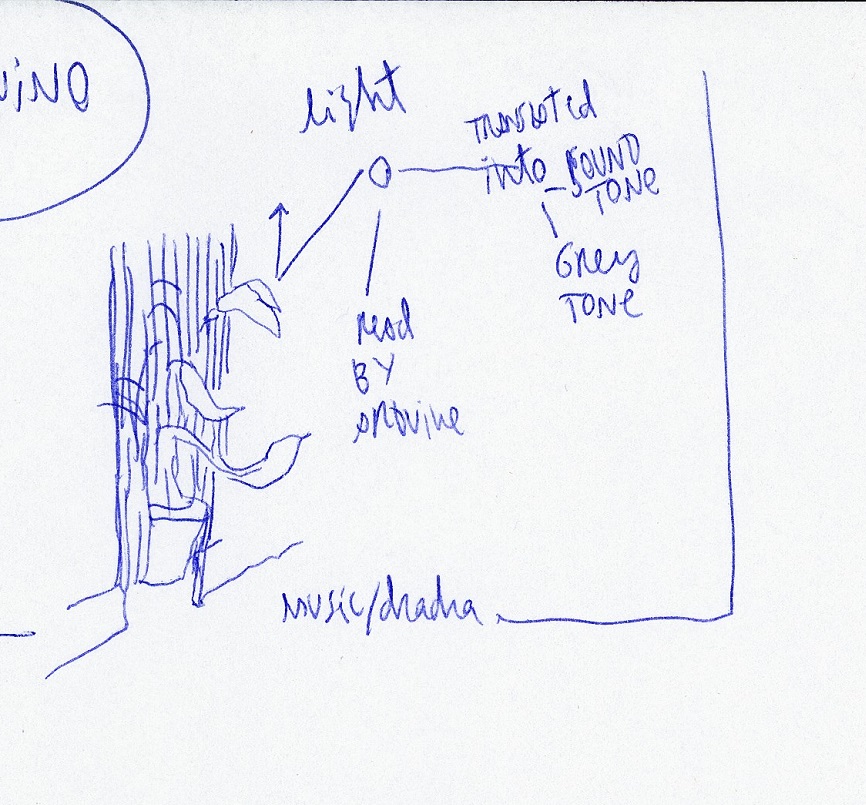 UiNO
light
Translated
into SOUND
TONE
Grey
TONE
read
BY
arduine
music/dradra